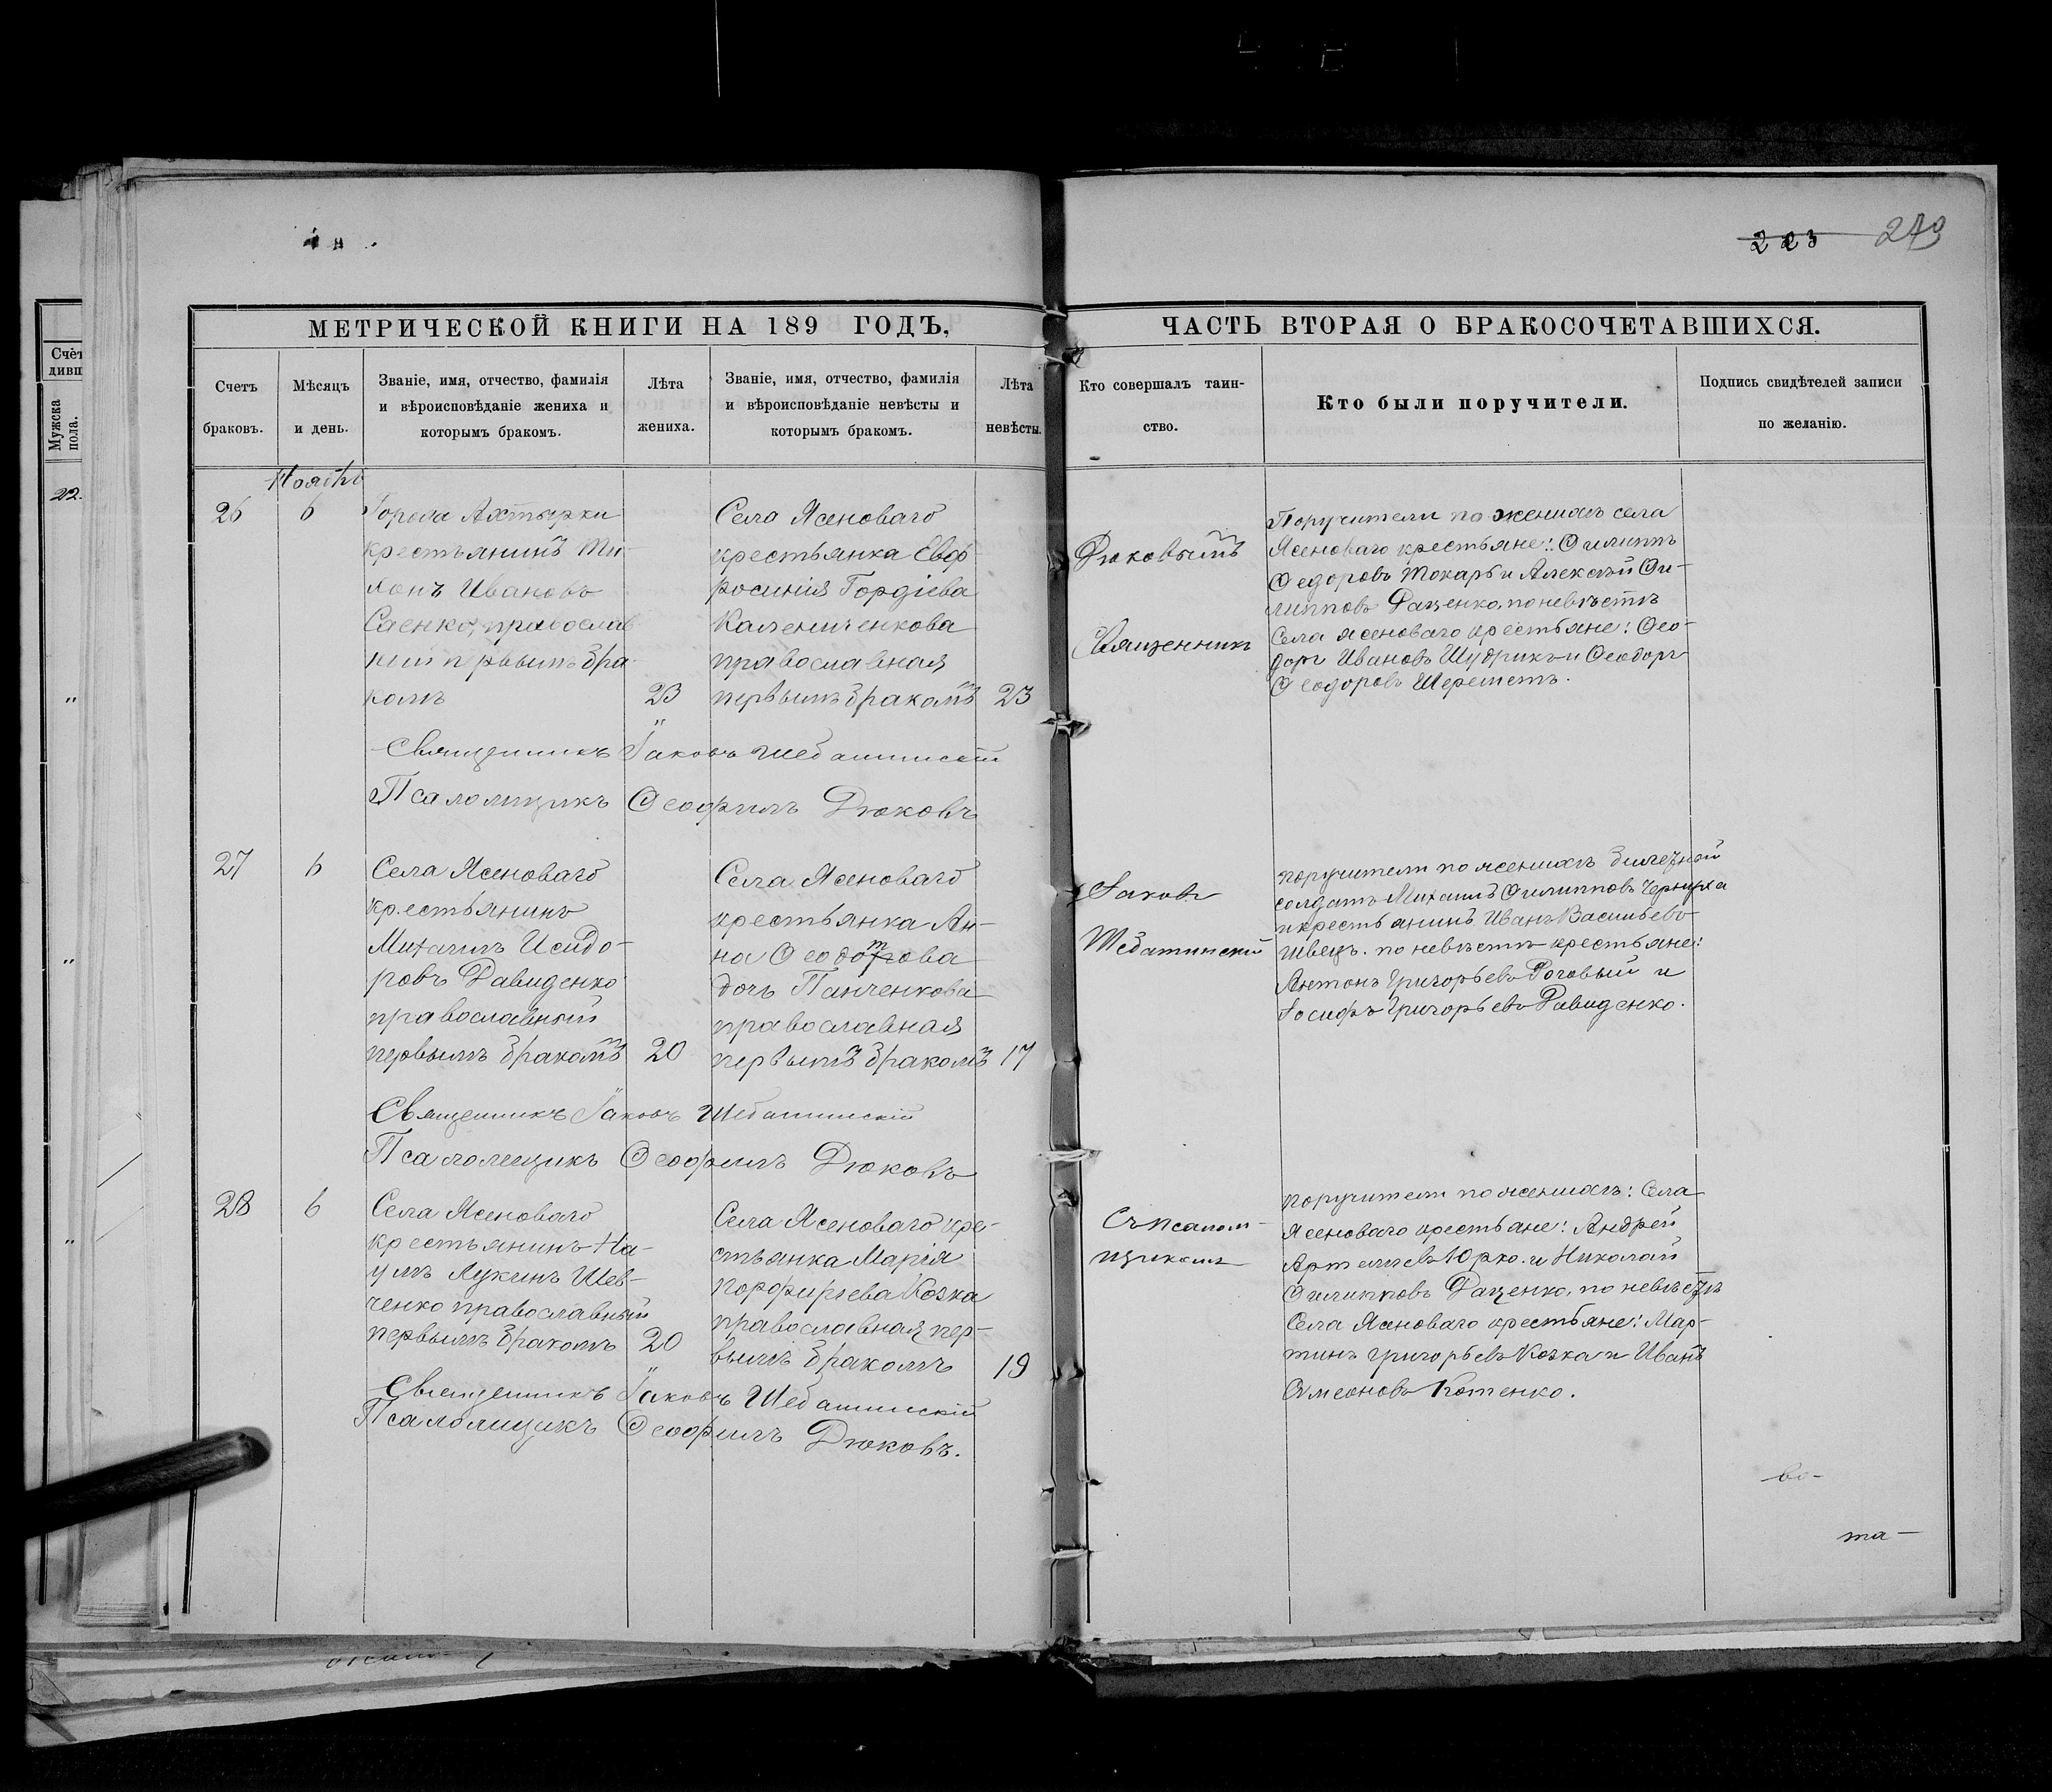 223 279
МЕТРИЧЕСКОЙ КНИГИ НА 189 ГОДЪ,
ЧАСТЬ ВТОРАЯ О БРАКОСОЧЕТАВШИХСЯ.
Счетъ
браковъ.
Мѣсяцъ
и день.
Званіе, имя, отчество, фамилія
и вѣроисповѣданіе жениха и
которымъ бракомъ.
Лѣта
жениха.
Званіе, имя, отчество, фамилія
и вѣроисповѣданіе невѣсты и
которымъ бракомъ.
Лѣта
невѣсты.
Кто совершалъ таин-
ство.
Кто были поручители.
Подпись свидѣтелей записи
по желанію.
Счет
дивш
Мужска
пола.
22.
26
6
Города Ахтырки
крестьянинъ Ти-
хонъ Ивановъ
Саенко, православ
ный первымъ бра-
комъ
23
Села Ясеноваго
крестьянка Евф
росинія Гордіева
Калениченкова
православная
первымъ бракомъ
23
Дюковымъ
Священникъ
Поручители по женихѣ села
Ясеноваго крестьяне: Филиппъ
Федоровъ Токарь и Алексѣй Фи-
липповъ Даценко, по невѣстѣ
Села Ясеноваго крестьяне: Фео-
доръ Ивановъ Шудрикъ и Феодоръ
Феодоровъ Шереметъ.
Священникъ Іаковъ Шебатинскій
Псаломщикъ Феофилъ Дюковъ
27
6
Села Ясеноваго
крестьянинъ
Михаилъ Исидо-
ровъ Давиденко
православный
первымъ бракомъ
20
Села Ясеноваго
крестьянка Ан-
на Феодотова
дочь Панченкова
православная
первымъ бракомъ
17
Іаковъ
Шебатинскій
поручители по женихѣ билетной
солдатъ Михаилъ Филипповъ
и крестьянинъ Иванъ Васильевъ
Швецъ. по невѣстѣ крестьяне:
Антонъ Григорьевъ Роговый и
Іосифъ Григорьевъ Давиденко.
Священникъ Іаковъ Шебатинскій
Псаломщикъ Феофилъ Дюковъ
28
6
Села Ясеноваго
крестьянинъ На-
умъ Лукинъ Шев-
ченко православный
первымъ бракомъ
20
Села Ясеноваго кре-
стьянка Марія
Порфирьева Козка
православная пер-
вымъ бракомъ
19
Съ псалом-
щикомъ
поручители по женихѣ: Села
Ясеноваго крестьяне: Андрей
Артемьевъ Юрко. и Николай
Филипповъ Даценко, по невѣстѣ
Села Ясеноваго крестьяне: Мар-
тинъ Григорьевъ Козка и Иванъ
Симеоновъ Котенко.
Священникъ Іаковъ Шебатинскій
Псаломщикъ Феофилъ Дюковъ.
во-
та-